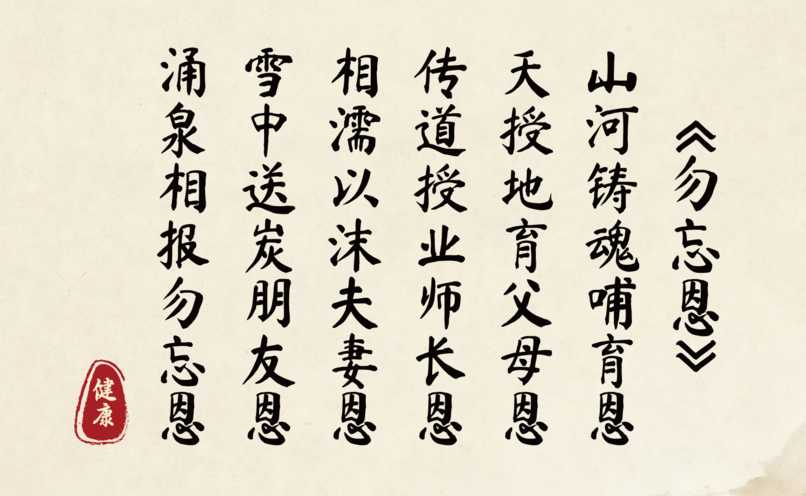 《勿忘恩》
山河铸魂哺育恩
天授地育父母恩
传道授业师长恩
相濡以沫夫妻恩
雪中送炭朋友恩
涌泉相报勿忘恩
健康